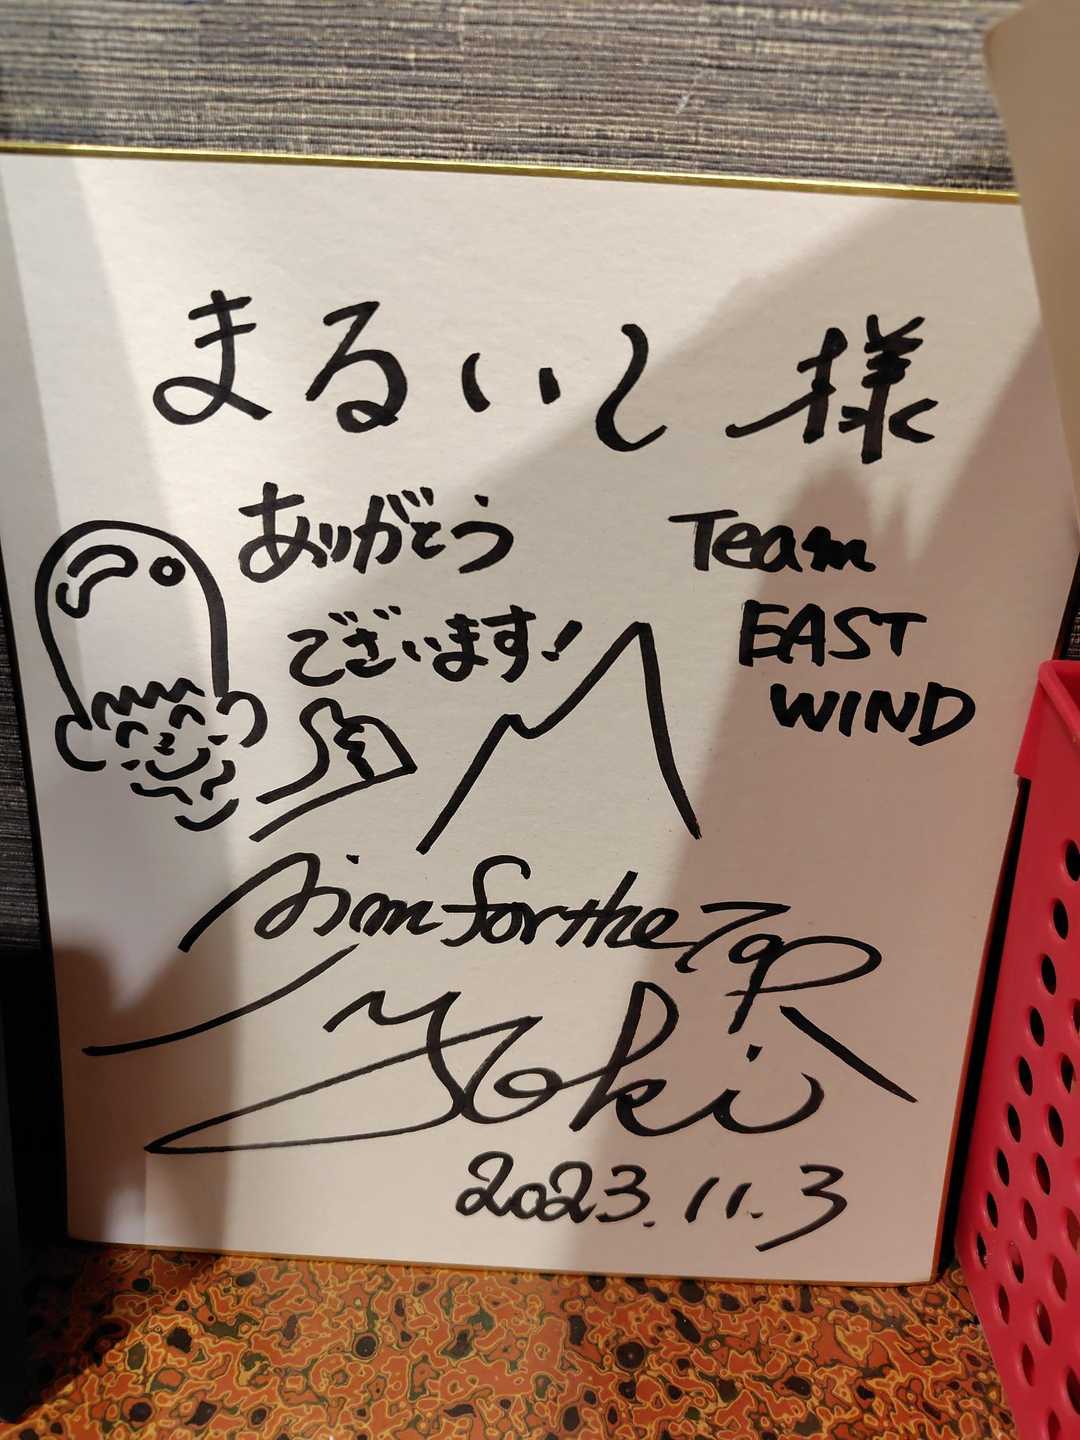 まるいし様
ありがとう
ございます!
Team
EAST
WIND
Aim for the Top
Yoki
2023.11.3